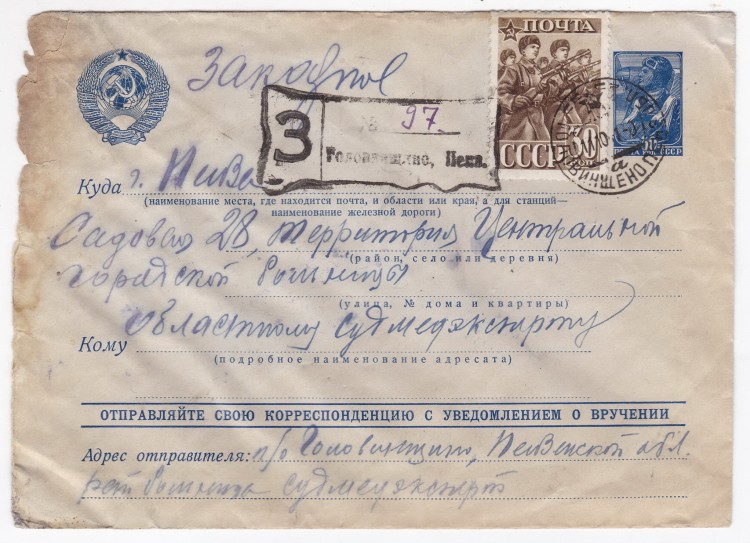 Заказное
ПОЧТА
З
№ 97.
Головинщено, Пенз.
30
СССР
ПОЧТА СССР
Куда г. Пенза
(наименование места, где находится почта, и области или края, а для станций—
наименование железной дороги)
Садовая 28, территория Центральной
(район, село или деревня)
городской больницы
(улица, № дома и квартиры)
Областному судмедэксперту
Кому
(подробное наименование адресата)
ОТПРАВЛЯЙТЕ СВОЮ КОРРЕСПОНДЕНЦИЮ С УВЕДОМЛЕНИЕМ О ВРУЧЕНИИ
Адрес отправителя: п/о Головинщино, Пензенской обл.
больница судмедэксперт